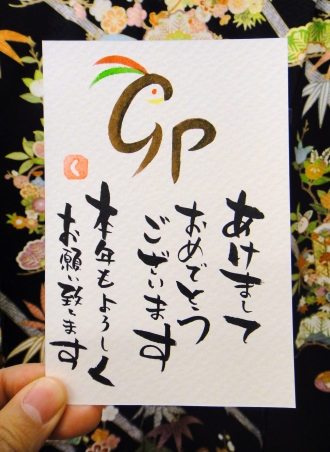 GP
あけまして
おめでとう
ございます
本年もよろしく
お願い致します
く